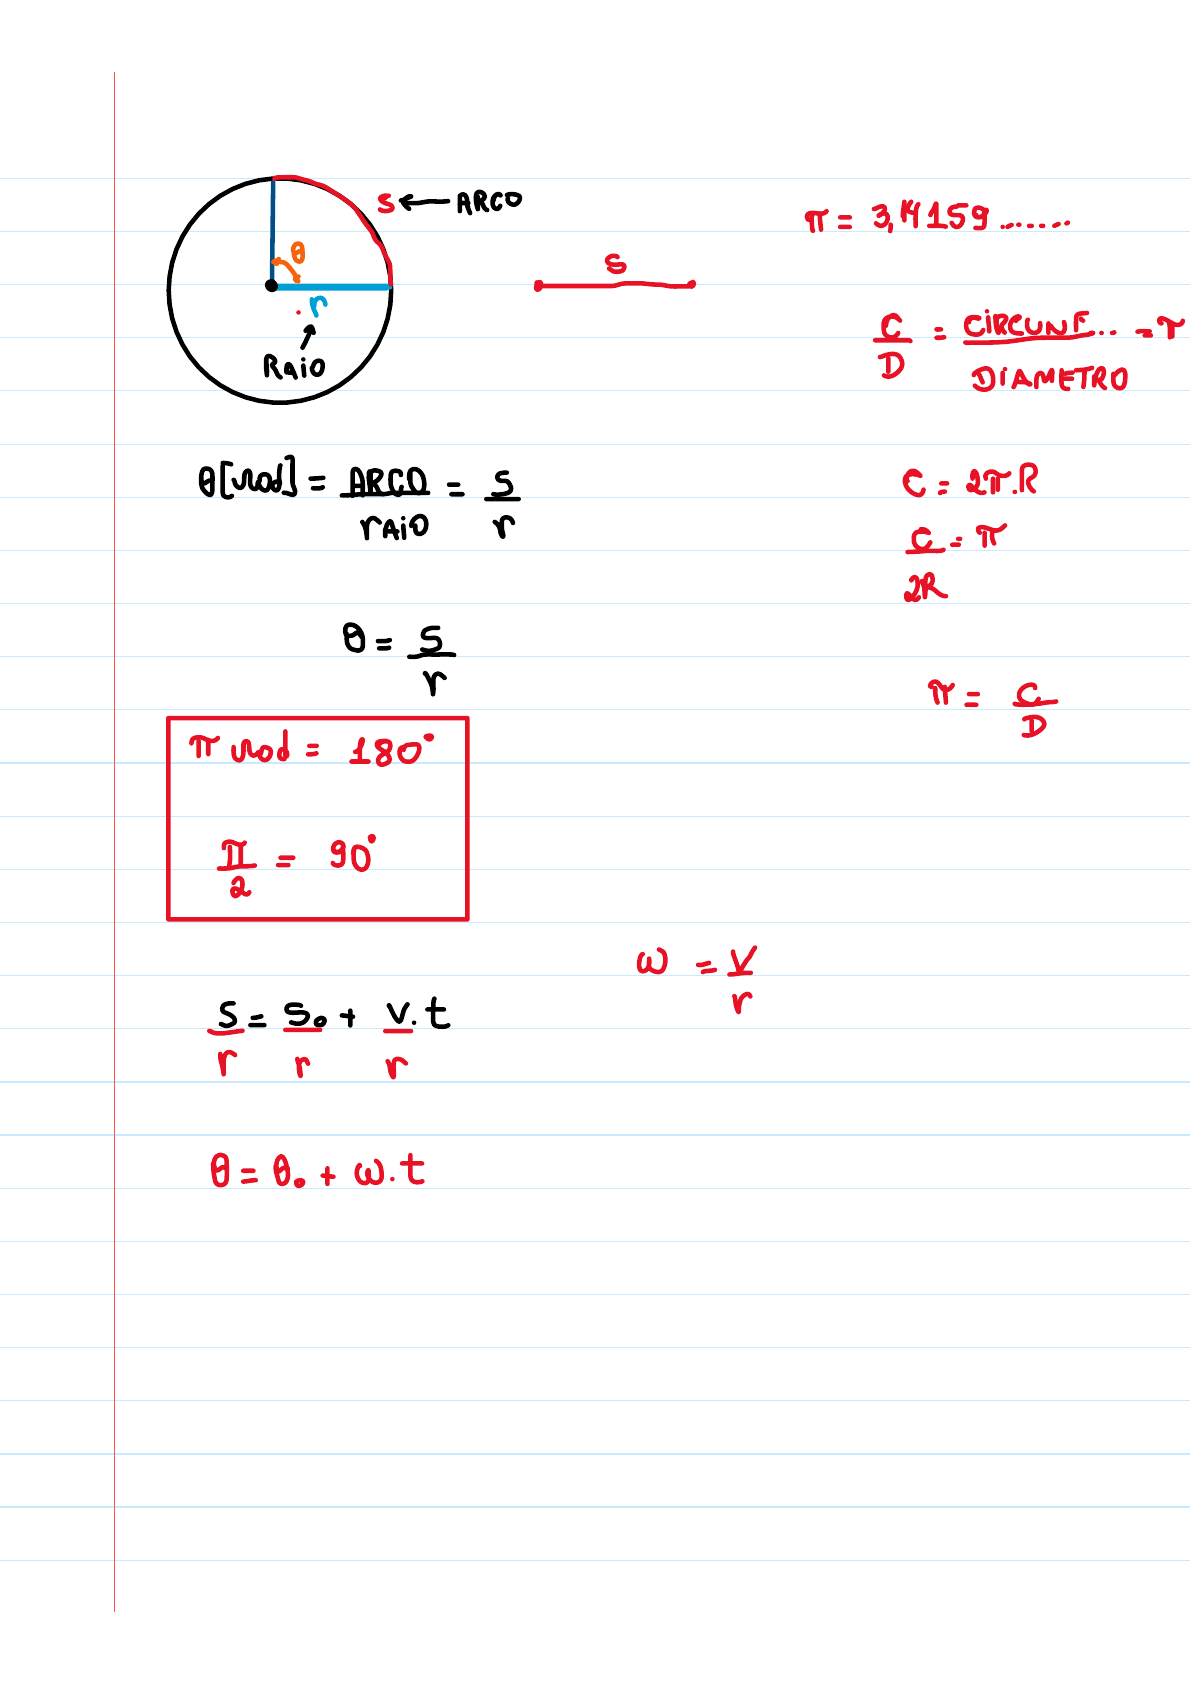 S ← ARCO
θ
r
RAIO
S
π = 3,14159.......
C/D = CIRCUNF... / DIAMETRO = π
θ[rad] = ARCO/rAIO = S/r
C = 2π.R
C/2R = π
θ = S/r
π = C/D
π rad = 180°
π/2 = 90°
ω = V/r
S/r = S₀/r + V/r.t
θ = θ₀ + ω.t